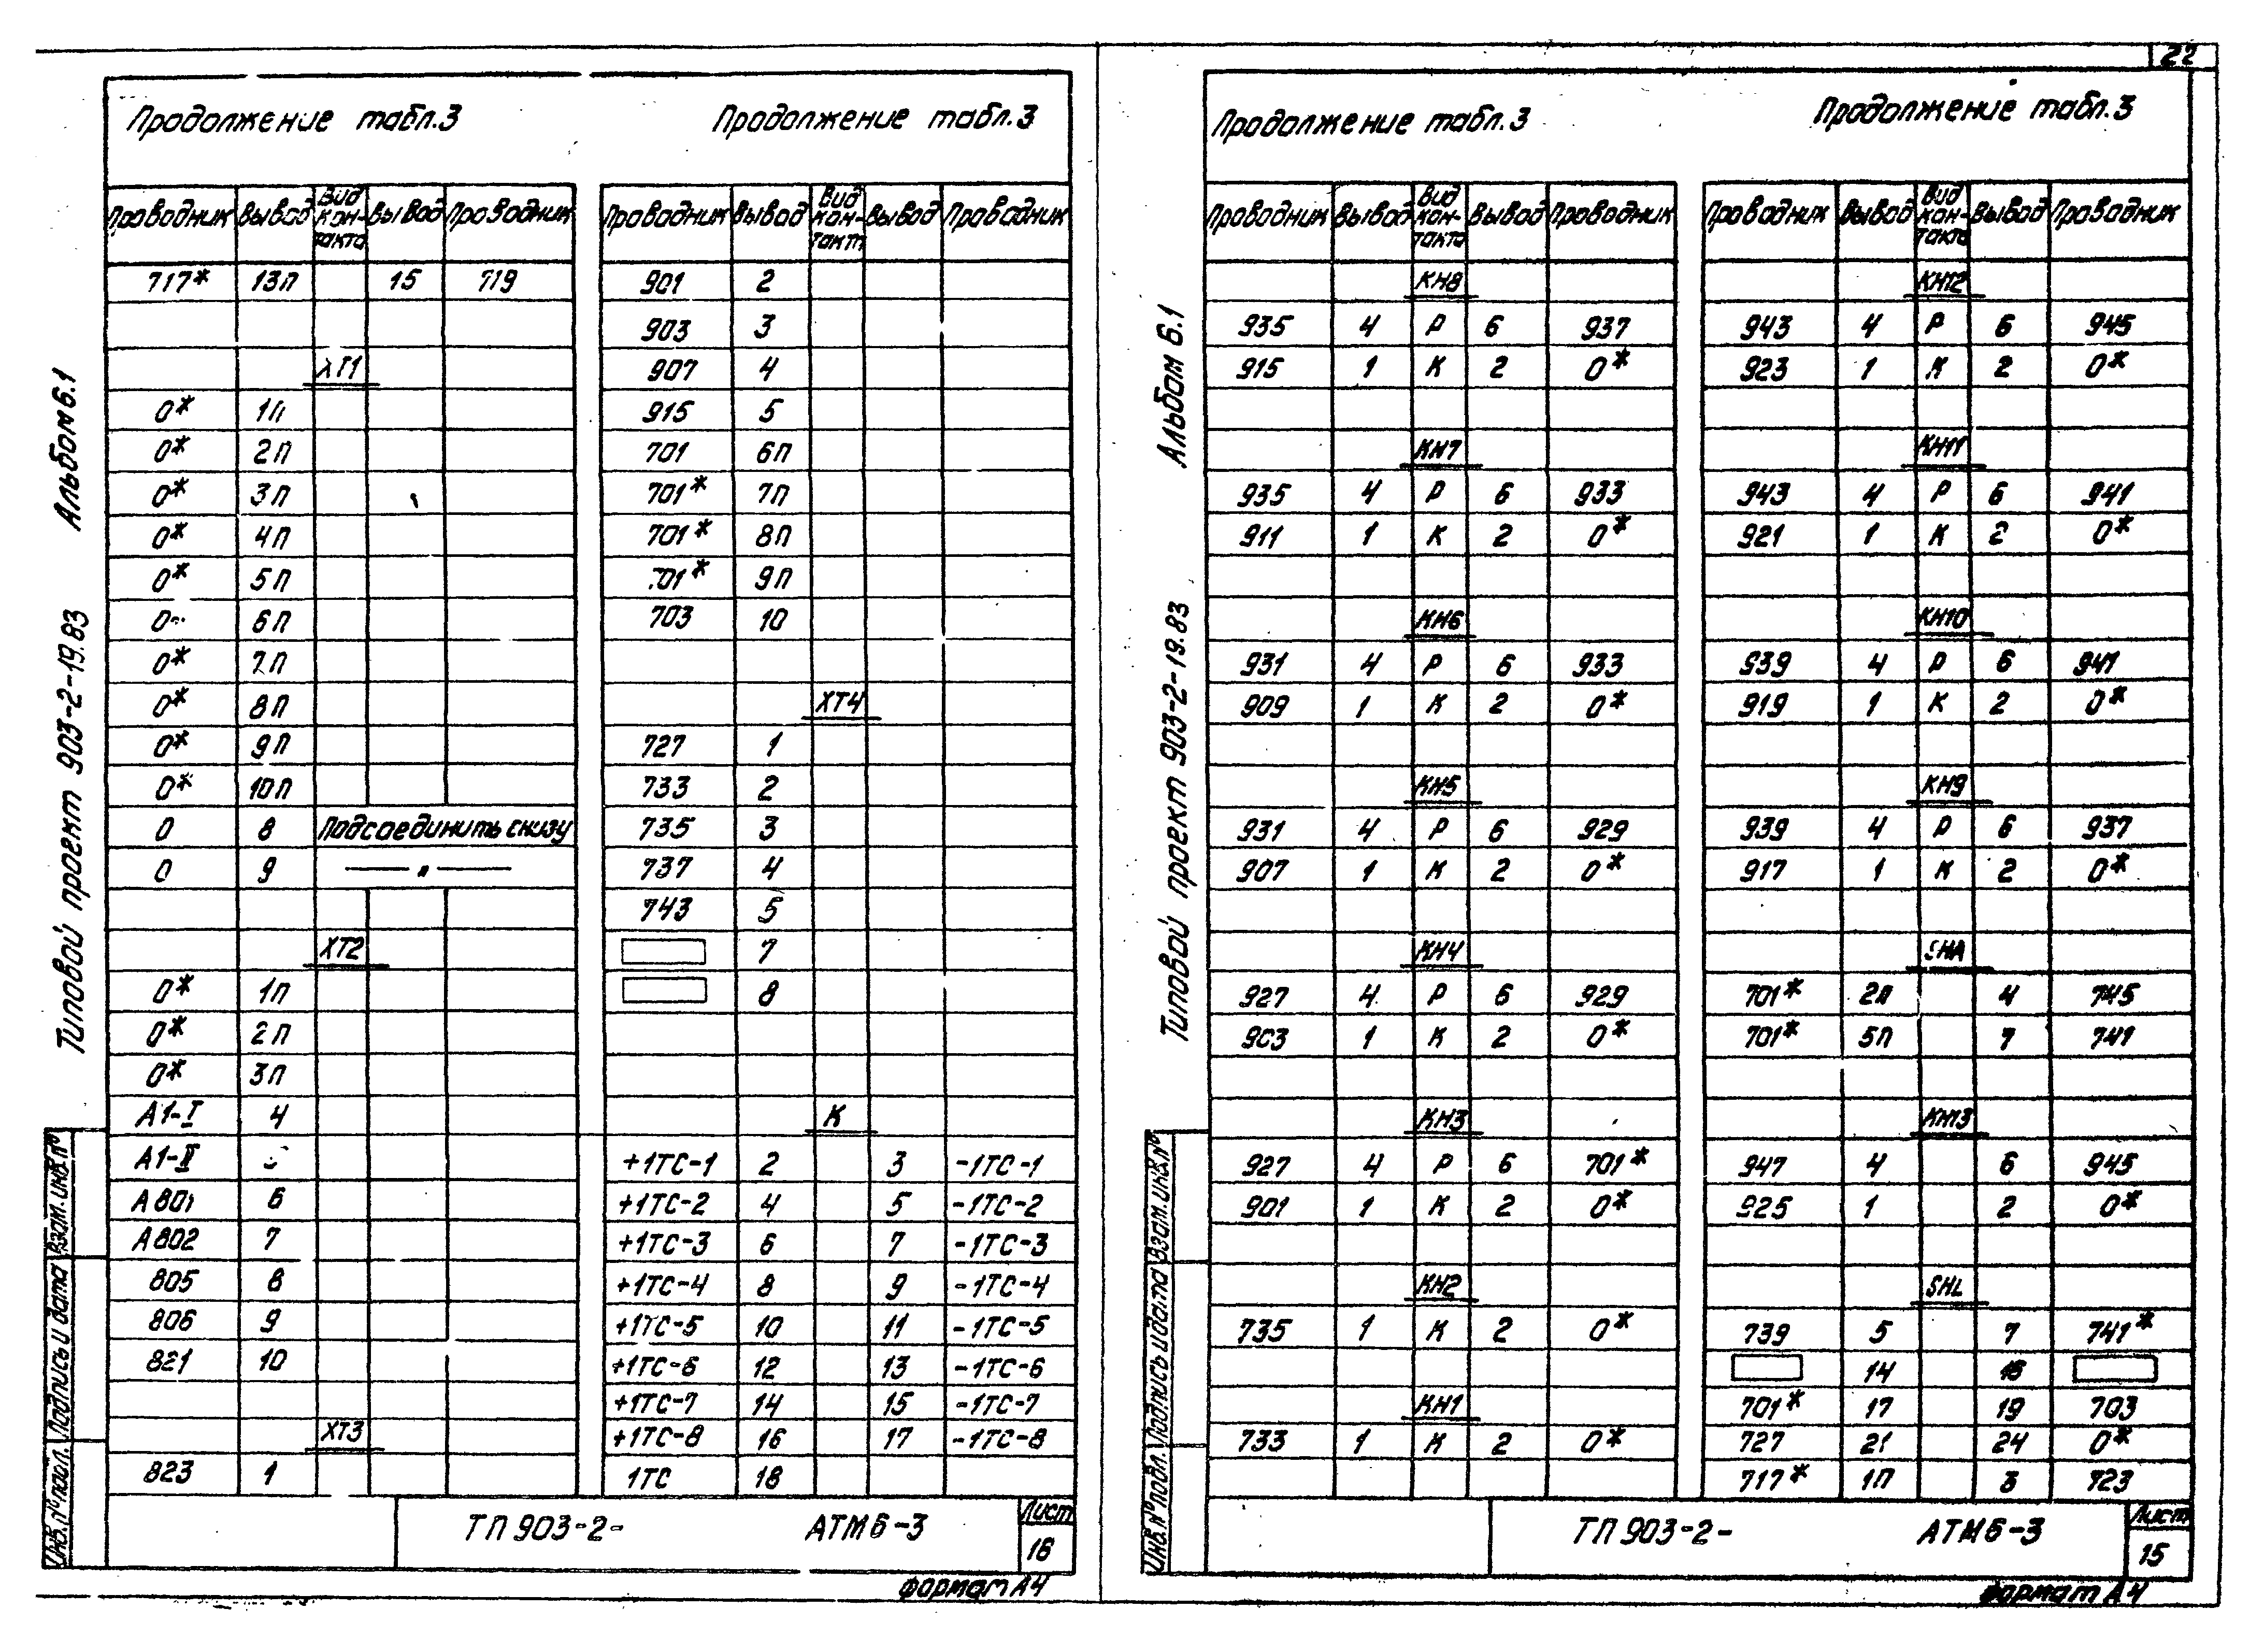 22
Альбом 6.1
Типовой проект 903-2-19.83
Взам. инв. №
Подпись и дата
Инв. № подл.
Продолжение табл.3
Проводник Вывод Вид контакта Вывод Проводник
717* 13П 15 719
ХТ1
0* 1П
0* 2П
0* 3П
0* 4П
0* 5П
0 6П
0* 7П
0* 8П
0* 9П
0* 10П
0 8 Подсоединить снизу
0 9 — " —
ХТ2
0* 1П
0* 2П
0* 3П
А1-I 4
А1-II
А801 6
А802 7
805 8
806 9
821 10
ХТ3
823 1
Продолжение табл.3
Проводник Вывод Вид контакт Вывод Проводник
901 2
903 3
907 4
915 5
701 6П
701* 7П
701* 8П
701* 9П
703 10
ХТ4
727 1
733 2
735 3
737 4
743 5
7
8
К
+1ТС-1 2 3 -1ТС-1
+1ТС-2 4 5 -1ТС-2
+1ТС-3 6 7 -1ТС-3
+1ТС-4 8 9 -1ТС-4
+1ТС-5 10 11 -1ТС-5
+1ТС-6 12 13 -1ТС-6
+1ТС-7 14 15 -1ТС-7
+1ТС-8 16 17 -1ТС-8
1ТС 18
ТП 903-2- АТМ6-3
Лист
16
формат А4
Альбом 6.1
Типовой проект 903-2-19.83
Взам. инв. №
Подпись и дата
Инв. № подл.
Продолжение табл.3
Проводник Вывод Вид контакта Вывод Проводник
КН8
935 4 Р 6 937
915 1 К 2 0*
КН7
935 4 Р 6 933
911 1 К 2 0*
КН6
931 4 Р 6 933
909 1 К 2 0*
КН5
931 4 Р 6 929
907 1 К 2 0*
КН4
927 4 Р 6 929
903 1 К 2 0*
КН3
927 4 Р 6 701*
901 1 К 2 0*
КН2
735 1 К 2 0*
КН1
733 1 К 2 0*
Продолжение табл.3
Проводник Вывод Вид контакта Вывод Проводник
КН12
943 4 Р 6 945
923 1 К 2 0*
КН11
943 4 Р 6 941
921 1 К 2 0*
КН10
939 4 Р 6 941
919 1 К 2 0*
КН9
939 4 Р 6 937
917 1 К 2 0*
SHA
701* 2П 4 745
701* 5П 7 741
КН13
947 4 6 945
925 1 2 0*
SHL
739 5 7 741*
14 16
701* 17 19 703
727 21 24 0*
717* 1П 3 723
ТП 903-2- АТМ6-3
Лист
15
формат А4